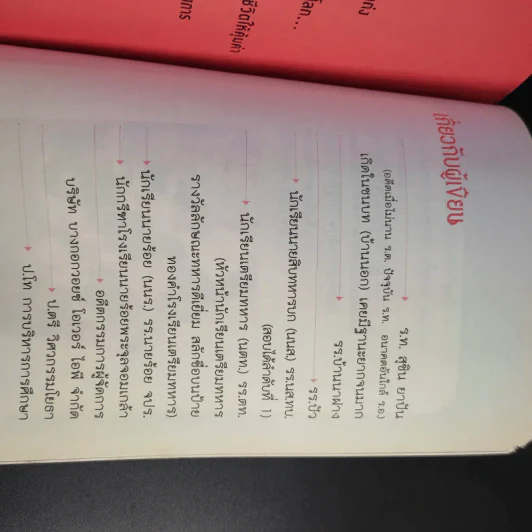 เกี่ยวกับผู้เขียน
ร.ท. สุชิน ยาปัน
(อดีตเมื่อไม่นาน ร.ต. ปัจจุบัน ร.ท. อนาคตอันใกล้ ร.อ)
เกิดในชนบท (บ้านนอก) เคยมีฐานะยากจนมาก
รร.บ้านนาฝาง
รร.ปัว
นักเรียนนายสิบทหารบก (นนส) รร.นส.ทบ.
(สอบได้ลำดับที่ 1)
นักเรียนเตรียมทหาร (นตท.) รร.ตท.
(หัวหน้านักเรียนเตรียมทหาร
รางวัลลักษณะทหารดีเยี่ยม สลักชื่อบนป้าย
ทองคำโรงเรียนเตรียมทหาร)
นักเรียนนายร้อย (นนร.) รร.นายร้อย จปร.
นักกรีฑาโรงเรียนนายร้อยพระจุลจอมเกล้า
อดีตกรรมการผู้จัดการ
บริษัท บางกอกวอยซ์ โอเวอร์ ไอพี จำกัด
ป.ตรี วิศวกรรมโยธา
ป.โท การบริหารการศึกษา
โลก...
ชีวิตให้คุ้มค่า